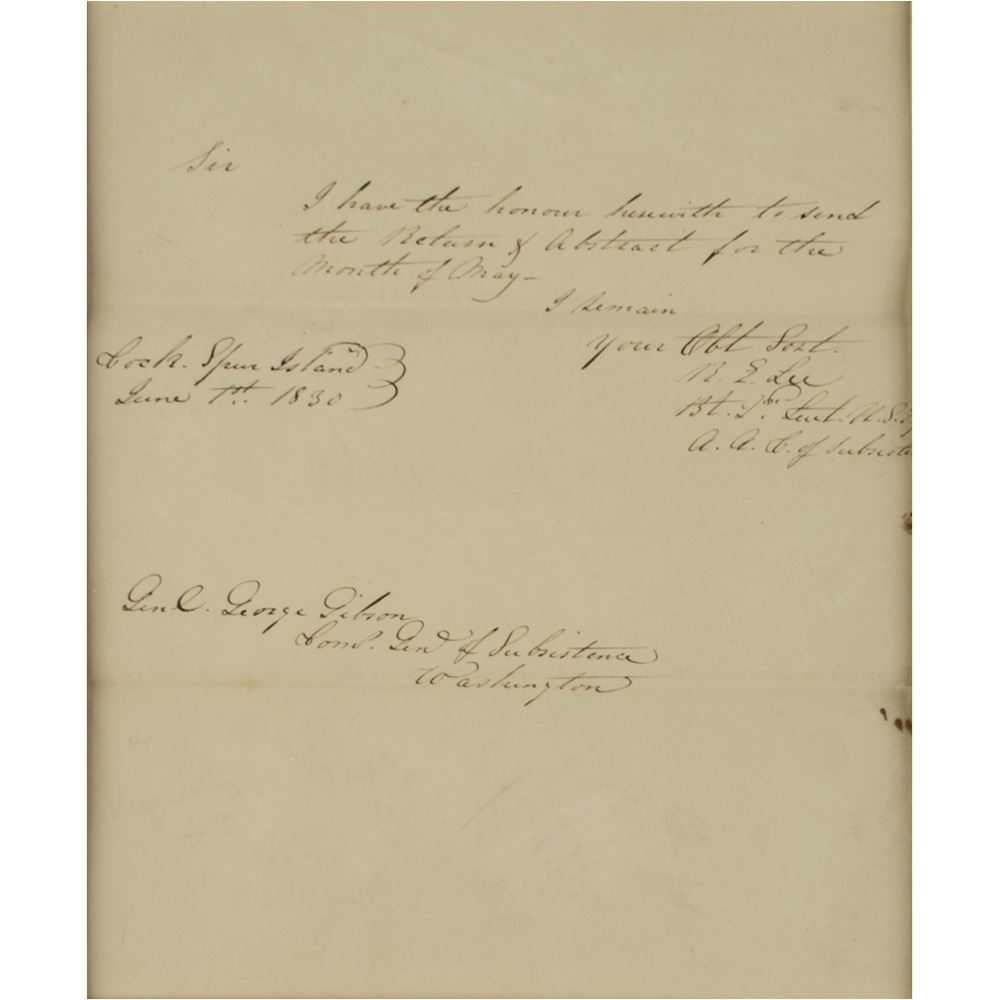 Sir
I have the honour herewith to send
the Return & Abstract for the
Month of May—
I remain
Your Obt Sevt.
R. E. Lee
Bt. 2d. Lieut. U. S.
A. A. C. of Subsiste
Cock. Spur Island
June 1st. 1830
Genl. George Gibson
Comy. Genl of Subsistence
Washington